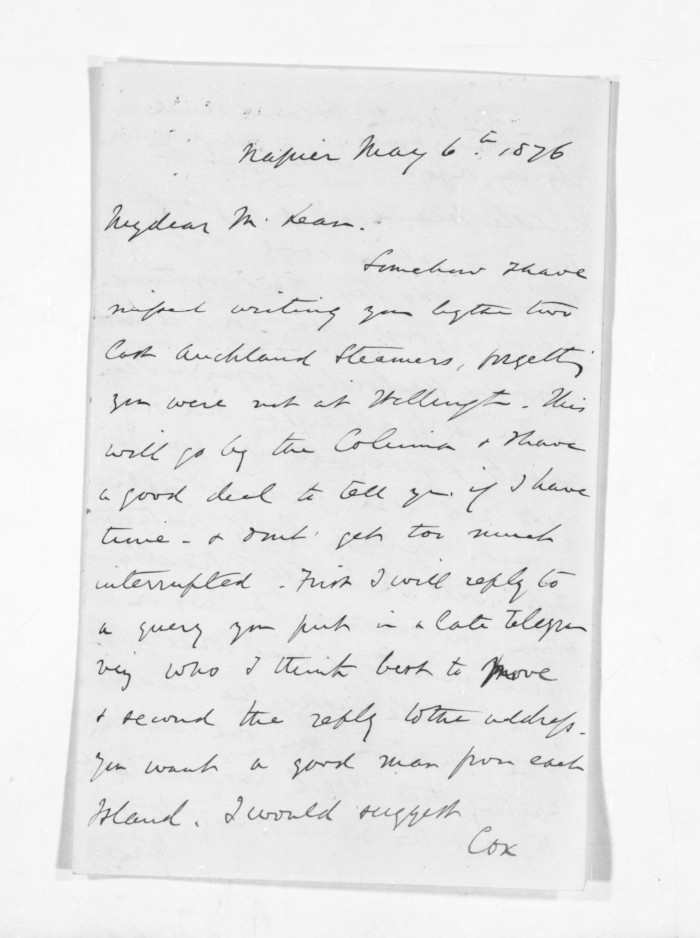 Napier May 6th. 1876
My dear McLean.
Somehow I have
missed writing you by the two
last Auckland Steamers, forgetting
you were not at Wellington. This
will go by the Colima & I have
a good deal to tell you if I have
time - & don't get too much
interrupted. First I will reply to
a query you put in a late telegram
viz who I think best to move
& second the reply to the address.
You want a good man from each
Island. I would suggest
Cox